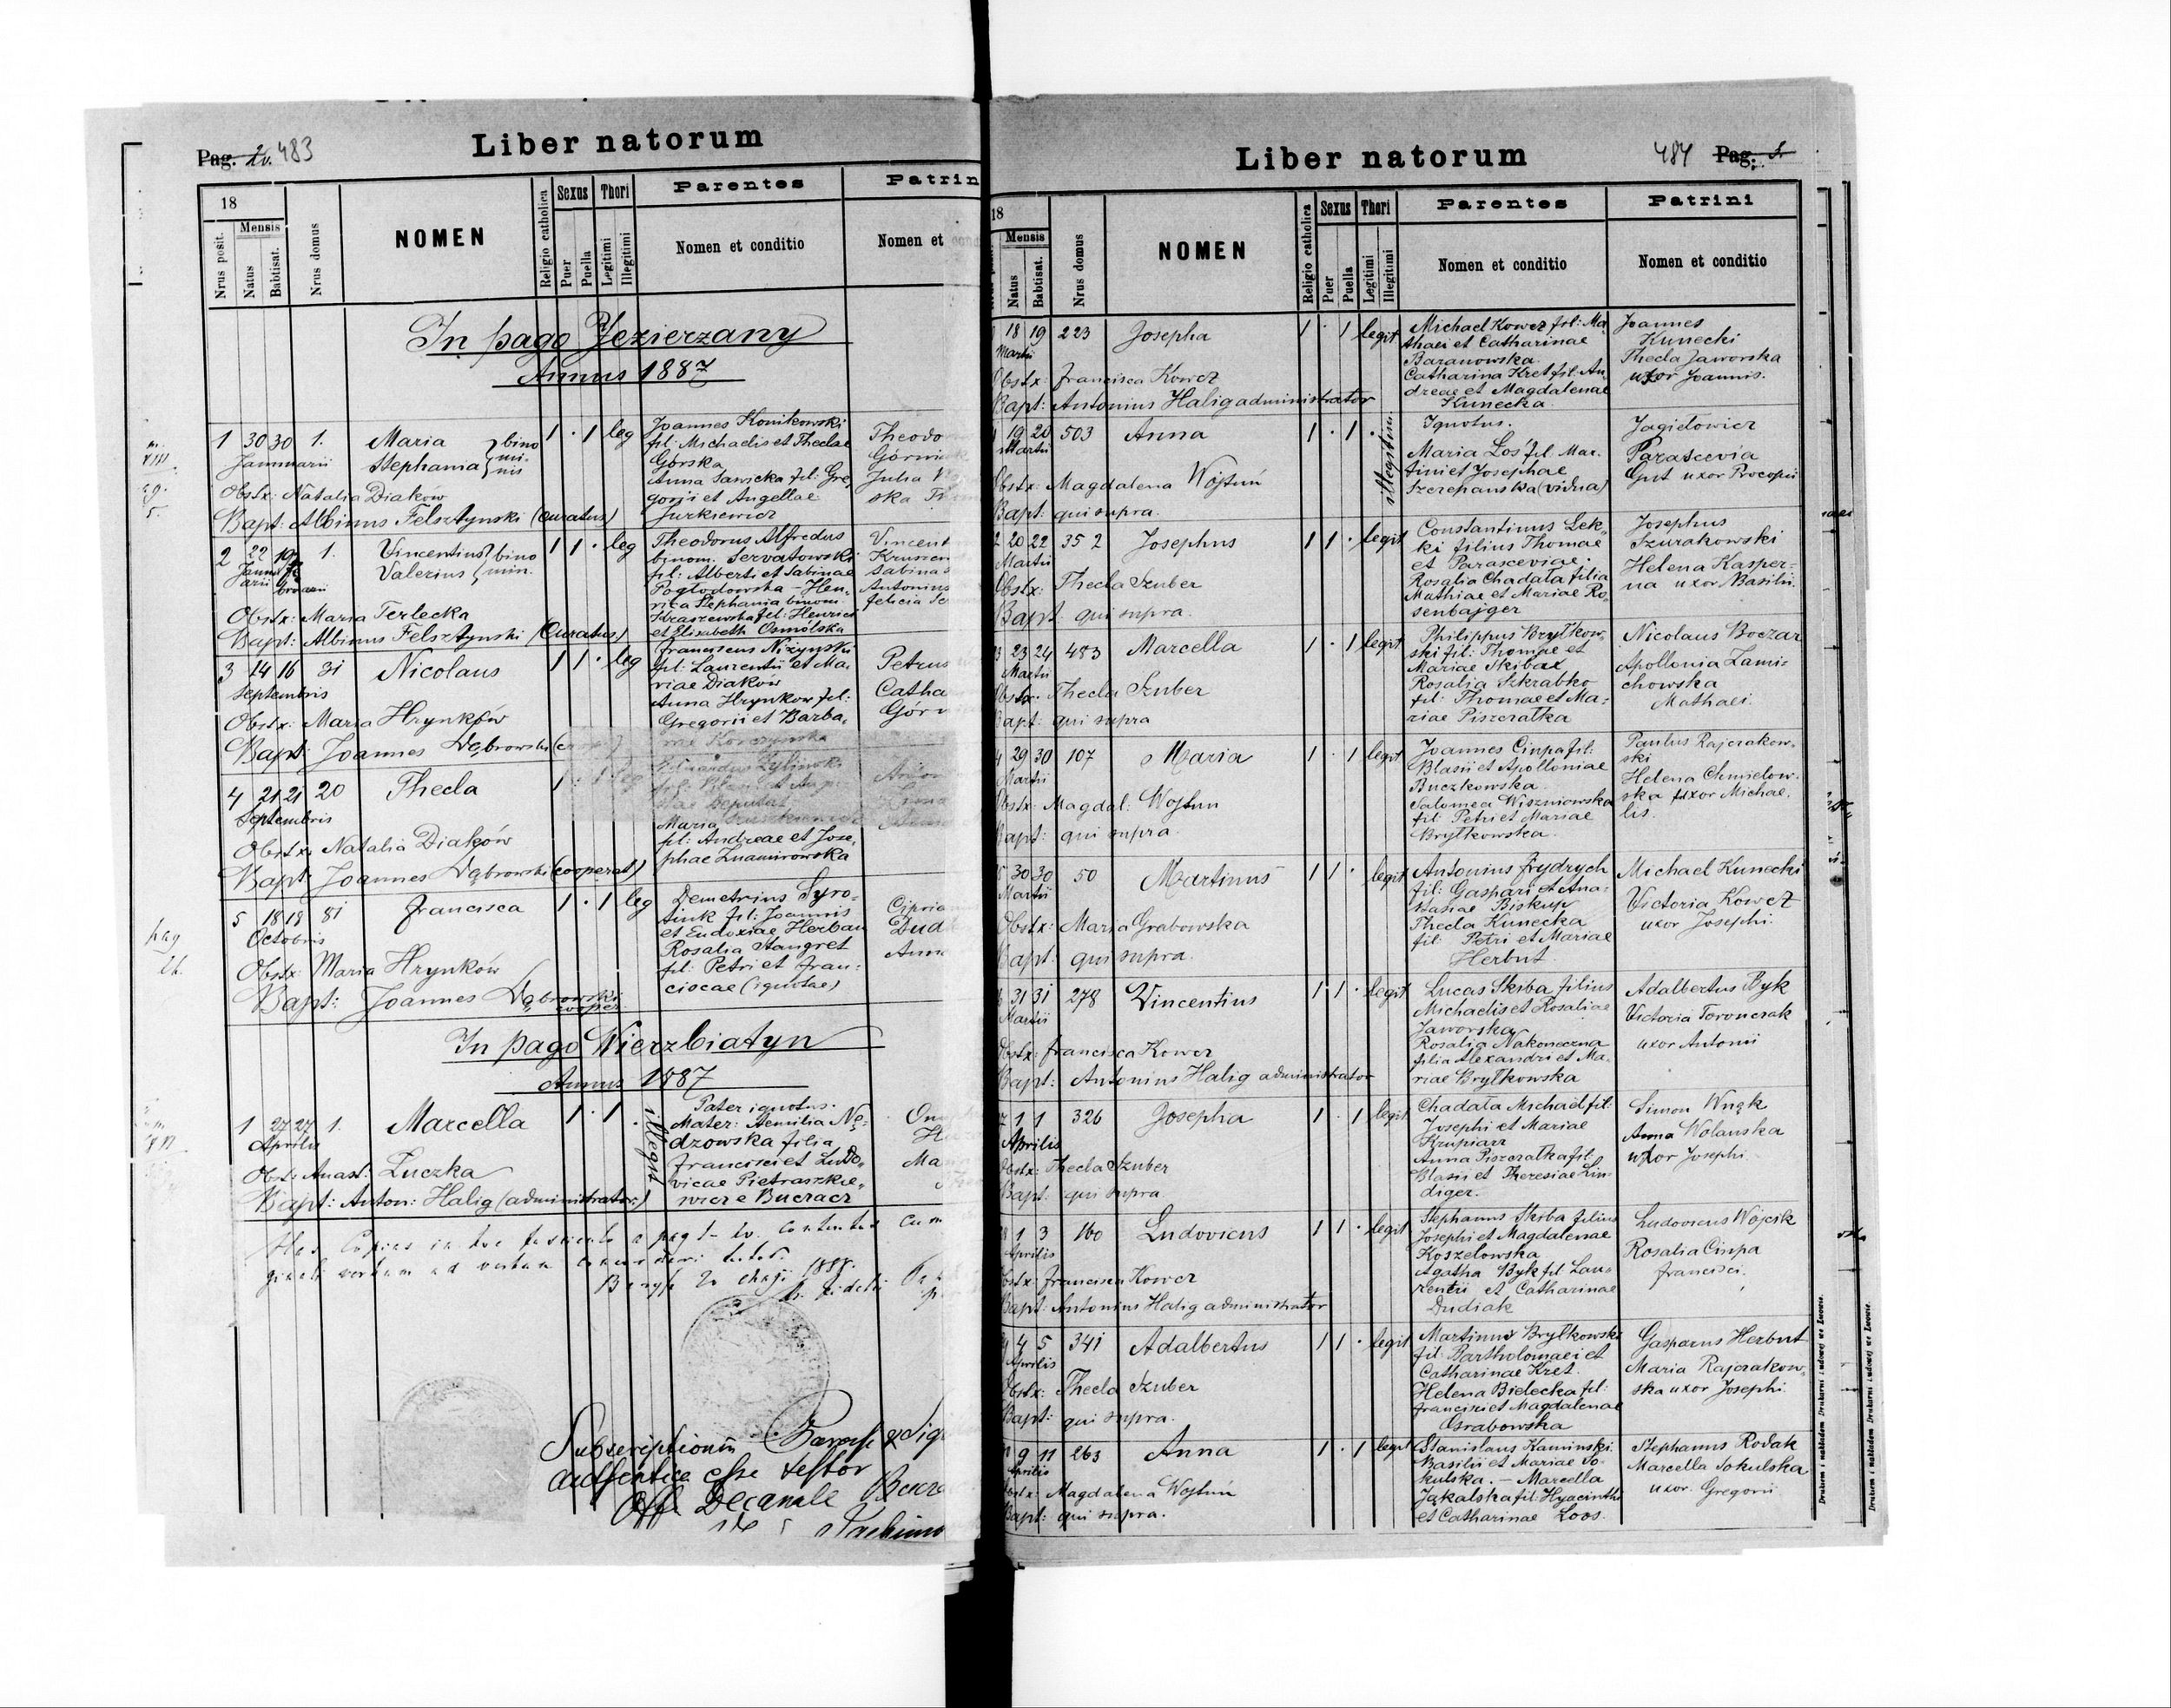 Liber natorum
Pag. 2v. 483
18
Mensis
Nrus posit.
Natus
Babtisat.
Nrus domus
NOMEN
Religio catholica
Sexus
Puer
Puella
Thori
Legitimi
Illegitimi
Parentes
Nomen et conditio
Patrin
Nomen et
In pago Jezierzany
Annus 1887
1 30 30 1. Maria Stephania } bino mi- nis 1 . 1 leg
Januarii
Joannes Konikowski
fil: Michaelis et Theclae
Górska
Anna Sawicka fil: Gre
gorii et Angellae
Jurkiewicz
Theodo
Górni
Julia
ska
Obstx: Natalia Diaków
Bapt: Albinus Felsztynski (Curatus)
2 22 19 1. Vincentius Valerius } bino min. 1 1 . leg
Theodorus Alfredus
binom. Servatowski
fil: Alberti et Sabinae
Pogłodowska - Hen-
rica Stephania binom
Kraszewska fil: Henrici
et Elisabeth Osmólska
Vincent
Sabina
Antonius
Felicia
Obstx: Maria Terlecka
Bapt: Albinus Felsztynski (Curatus)
3 14 16 31 Nicolaus 1 1 . leg
Septembris
Franciscus Nizynski
fil: Laurentii et Ma,
riae Diaków
Anna Hrynkow fil:
Gregorii et Barba,
rae Korczynska
Petrus
Catha
Gór
Obstx: Maria Hrynków
Bapt: Joannes Dąbrowski
4 21 21 20 Thecla 1 . 1 leg
Septembris
Maria
fil: Andreae et Jose,
phae Znamirowska
Obstx: Natalia Diaków
Bapt: Joannes Dąbrowski (cooperat)
5 18 18 81 Francisca 1 . 1 leg
Octobris
Demetrius Syro-
tiuk fil: Joannis
et Eudoxiae Herban
Rosalia Stangret
fil: Petri et Fran-
ciscae (ignotae)
Cipria
Dud
Anna
Obstx: Maria Hrynków
Bapt: Joannes Dąbrowski
cooper.
pag
In pago Wierzbiatyn
Annus 1887
1 27 27 1. Marcella 1 . 1 . illegit
Aprilis
Pater ignotus.
Mater: Aemilia Nę-
dzowska filia
Francisci et Ludo,
vicae Pietraszkie,
wicz e Buczacz
Ma
Obst: Anast: Luczka
Bapt: Anton: Halig (administrator)
Has Copias in hoc fasciculo a pag 1- contentas cum
verbum ad verbum
1888.
Subscriptionem
authentice esse testor
Off. Decanale
Liber natorum
484 Pag. 3.
18
Mensis
Natus
Babtisat.
Nrus domus
NOMEN
Religio catholica
Sexus
Puer
Puella
Thori
Legitimi
Illegitimi
Parentes
Nomen et conditio
Patrini
Nomen et conditio
18 19 223 Josepha 1 . 1 legit
Martii
Michael Kowcz fil: Ma
thaei et Catharinae
Baranowska
Catharina Kret fil: An
dreae et Magdalenae
Kunecka
Joannes
Kunecki
Thecla Jaworska
uxor Joannis.
Obstx: Francisca Kowcz
Bapt: Antonius Halig administrator
19 20 503 Anna 1 . 1 . illegitim
Martii
Ignotus.
Maria Łoś fil: Mar-
tini et Josephae
Szczepanska (vidua)
Jagielowicz
Parascevia
Gut uxor Procopii
Obstx: Magdalena Wojtun
Bapt: qui supra.
20 22 352 Josephus 1 1 . legit
Martii
Constantinus Lek-
ki filius Thomae
et Parasceviae.
Rosalia Chadała filia
Mathiae et Mariae Ro,
senbajger
Josephus
Szurakowski
Helena Kasper-
na uxor Basilii.
Obstx: Thecla Szuber
Bapt: qui supra.
23 24 483 Marcella 1 . 1 legit
Martii
Philippus Brytkow,
ski fil: Thomae et
Mariae Skibae
Rosalia Szkrabko
fil: Thomae et Ma-
riae Piszczatka
Nicolaus Boczar
Apollonia Zami-
chowska
Mathaei.
Obstx: Thecla Szuber
Bapt: qui supra
29 30 107 Maria 1 . 1 legit
Martii
Joannes Ciupa fil:
Blasii et Apolloniae
Buczkowska
Salomea Wiszniowska
fil: Petri et Mariae
Brytkowska.
Paulus Rajczakow,
ski
Helena Chmielow-
ska uxor Michae-
lis.
Obstx: Magdal: Wojtun
Bapt: qui supra.
30 30 50 Martinus 1 1 . legit
Martii
Antonius Frydrych
fil: Gaspari et Ana-
stasiae Biskup
Thecla Kunecka
fil: Petri et Mariae
Herbut.
Michael Kunecki
Victoria Kowcz
uxor Josephi.
Obstx: Maria Grabowska
Bapt: qui supra.
31 31 278 Vincentius 1 1 . legit
Martii
Lucas Skiba filius
Michaelis et Rosaliae
Jaworska
Rosalia Nakoneczna
filia Alexandri et Ma-
riae Brytkowska
Adalbertus Byk
Victoria Toronczak
uxor Antonii
Obstx: Francisca Kowcz
Bapt: Antonius Halig administrator
1 1 326 Josepha 1 . 1 legit
Aprilis
Chadała Michael fil:
Josephi et Mariae
Krupiarz
Anna Piszczatka fil:
Blasii et Theresiae Lin-
diger.
Simon Wnęk
Anna Wolanska
uxor Josephi
Obstx: Thecla Szuber
Bapt: qui supra
1 3 160 Ludovicus 1 1 . legit
Aprilis
Stephanus Skiba filius
Josephi et Magdalenae
Koszelowska
Agatha Byk fil: Lau-
rentii et Catharinae
Dudiak
Ludovicus Wójcik
Rosalia Ciupa
Francisci.
Obstx: Francisca Kowcz
Bapt: Antonius Halig administrator
4 5 341 Adalbertus 1 1 . legit
Aprilis
Martinus Brytkowski
fil: Bartholomaei et
Catharinae Kret.
Helena Bielecka fil:
Francisci et Magdalenae
Grabowska
Gasparus Herbut
Maria Rajczakow,
ska uxor Josephi.
Obstx: Thecla Szuber
Bapt: qui supra.
9 11 263 Anna 1 . 1 legit
Aprilis
Stanislaus Kaminski
Basilii et Mariae So-
kulska. - Marcella
Jąkalska fil: Hyacinthi
et Catharinae Loos.
Stephanus Rodak
Marcella Sokulska
uxor Gregorii
Obstx: Magdalena Wojtun
Bapt: qui supra.
Drukiem i nakładem Drukarni Ludowej we Lwowie.
Drukiem i nakładem Drukarni Ludowej we Lwowie.